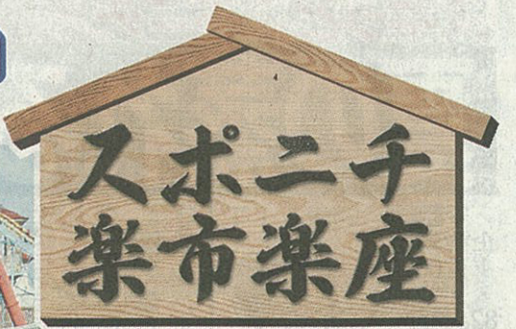 スポニチ
楽市楽座